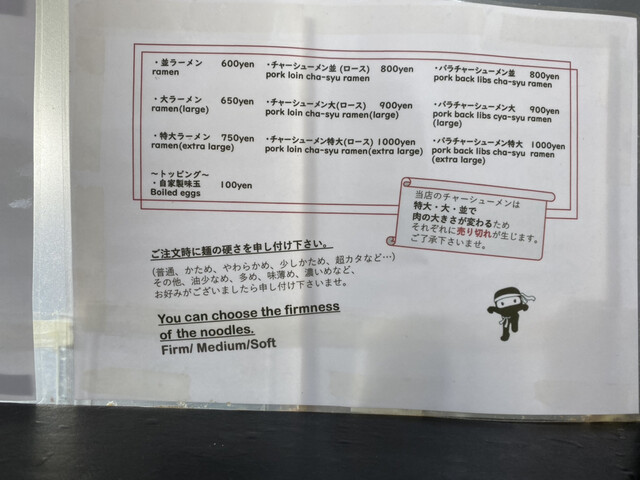 ・並ラーメン 600yen
ramen
・チャーシューメン並 (ロース) 800yen
pork loin cha-syu ramen
・バラチャーシューメン並 800yen
pork back libs cha-syu ramen
・大ラーメン 650yen
ramen(large)
・チャーシューメン大(ロース) 900yen
pork loin cha-syu ramen(large)
・バラチャーシューメン大 900yen
pork back libs cya-syu ramen
(large)
・特大ラーメン 750yen
ramen(extra large)
・チャーシューメン特大(ロース) 1000yen
pork loin cha-syu ramen(extra large)
・バラチャーシューメン特大 1000yen
pork back libs cha-syu ramen
(extra large)
～トッピング～
・自家製味玉 100yen
Boiled eggs
当店のチャーシューメンは
特大・大・並で
肉の大きさが変わるため
それぞれに売り切れが生じます。
ご了承下さいませ。
ご注文時に麺の硬さを申し付け下さい。
(普通、かため、やわらかめ、少しかため、超カタなど…)
その他、油少なめ、多め、味薄め、濃いめなど、
お好みがございましたら申し付け下さいませ。
You can choose the firmness
of the noodles.
Firm/ Medium/Soft